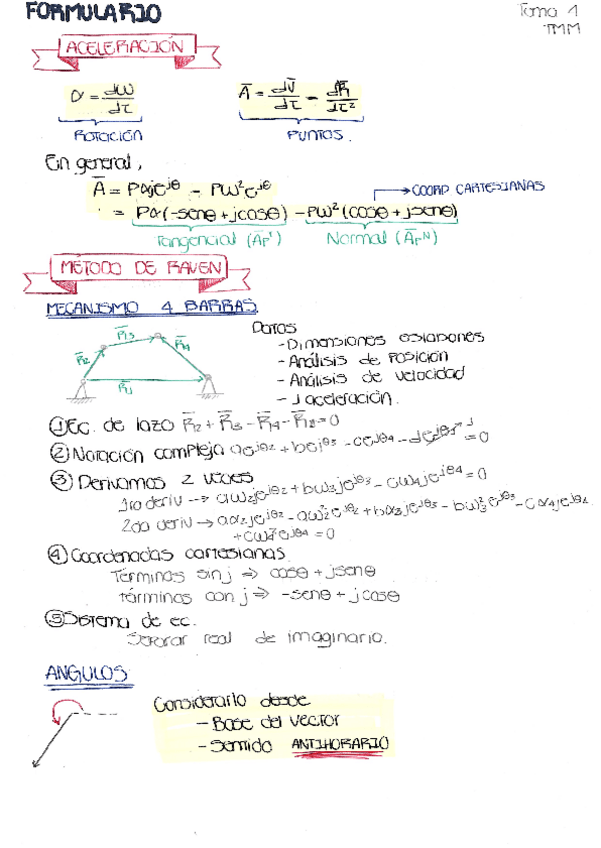 FORMULARIO
Tema 1
TMM
ACELERACIÓN
α = dω/dt
Ā = dV̄/dt = dR̄/dt²
ROTACIÓN
PUNTOS.
En general,
Ā = Pαje^jθ - Pω²e^jθ
→ COORD CARTESIANAS
= Pα(-senθ+jcosθ) - Pω²(cosθ+jsenθ)
Tangencial (Āpᵗ)
Normal (Āpᴺ)
MÉTODO DE RAVEN
MECANISMO 4 BARRAS
R̄3
R̄2
R̄4
R̄1
Datos
- Dimensiones eslabones
- Análisis de posición
- Análisis de velocidad
- 1 aceleración.
① Ec. de lazo R̄2 + R̄3 - R̄4 - R̄1 = 0
② Notación compleja ae^jθ2 + be^jθ3 - ce^jθ4 - de^jθ1 = 0
1
③ Derivamos 2 veces
1ra deriv --> aω2je^jθ2 + bω3je^jθ3 - cω4je^jθ4 = 0
2da deriv → aα2je^jθ2 - aω2²e^jθ2 + bα3je^jθ3 - bω3²e^jθ3 - cα4je^jθ4
+ cω4²e^jθ4 = 0
④ Coordenadas cartesianas
Términos sin j ⇒ cosθ + jsenθ
términos con j ⇒ -senθ + jcosθ
⑤ Sistema de ec.
Separar real de imaginario.
ANGULOS
Considerarlo desde
- Base del vector
- Sentido ANTIHORARIO